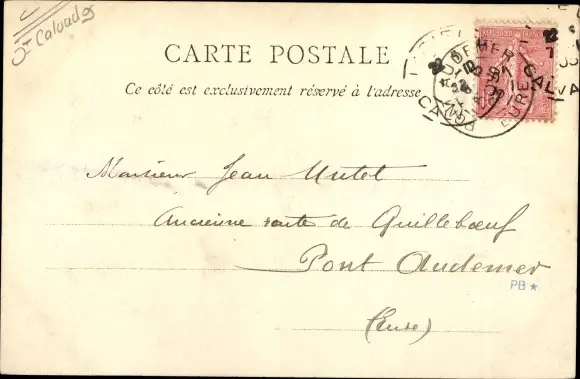 Ct Calvados
CARTE POSTALE
Ce côté est exclusivement réservé à l'adresse
Monsieur Jean Mutel
Ancienne route de Quillebœuf
Pont Audemer
PB ★
(Eure)
CALVA
EURE